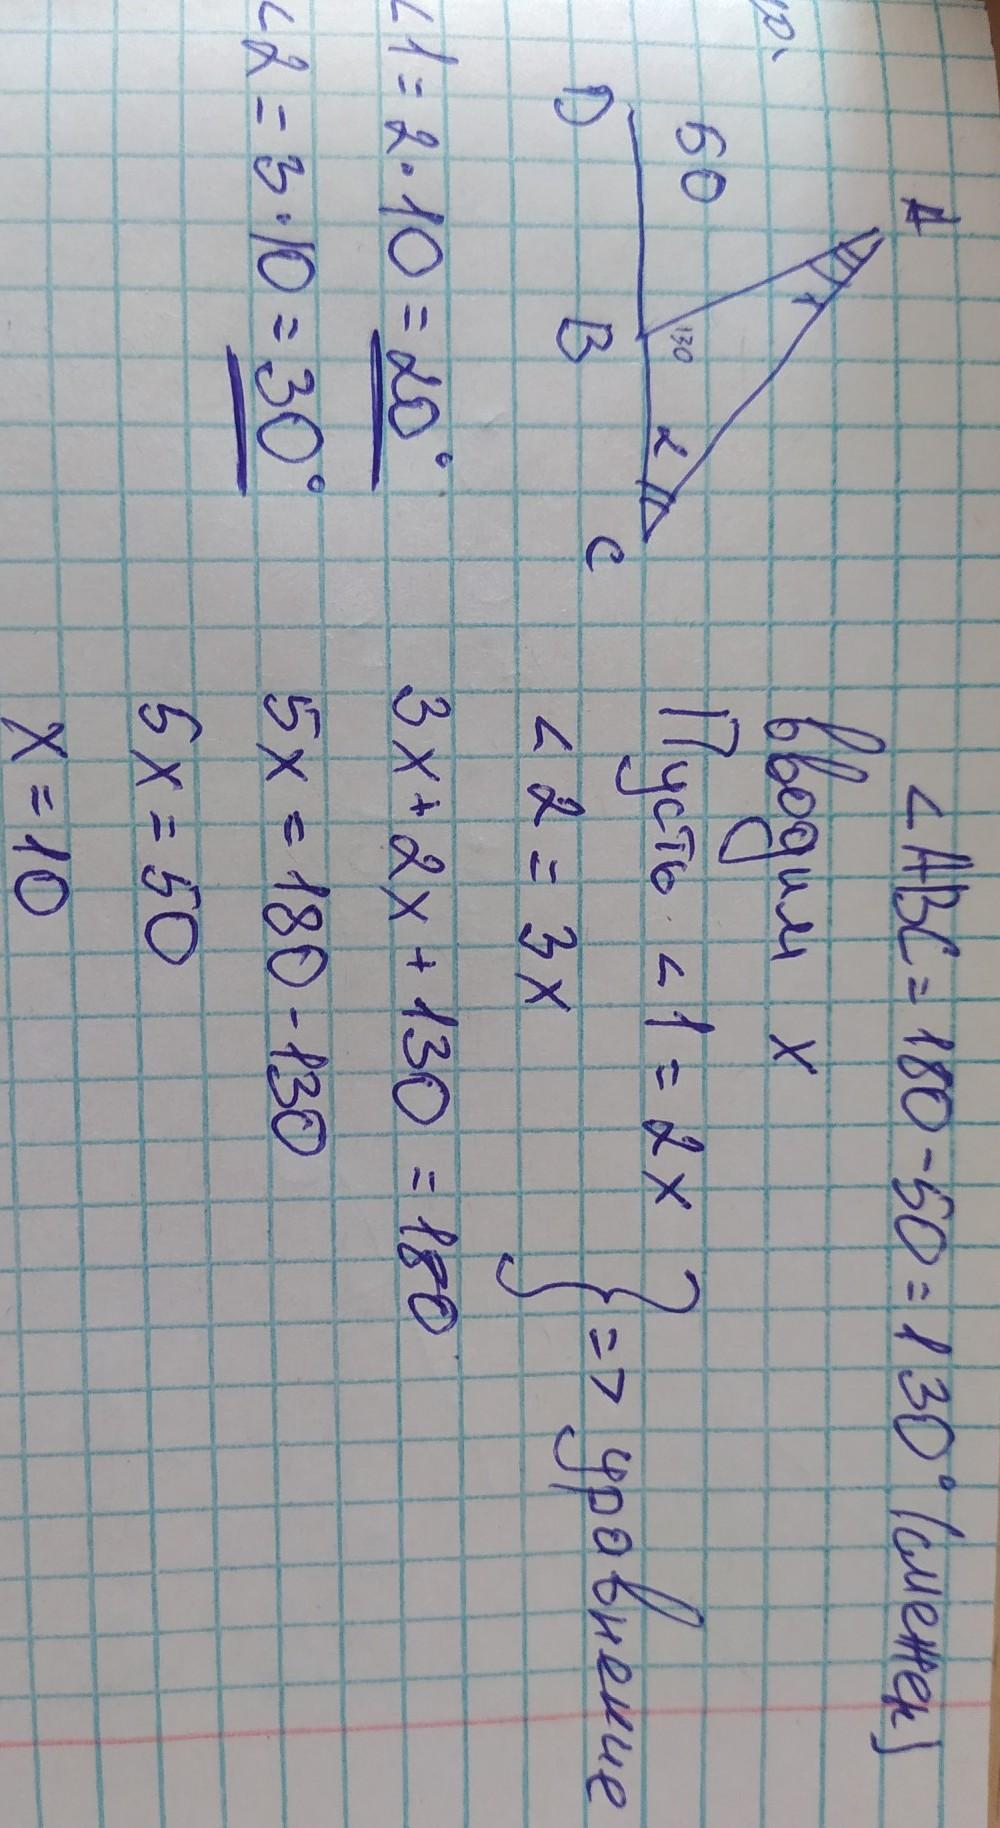 A
50
130
1
2
D
B
C
<ABC = 180 - 50 = 130° (смежн)
вводим x
Пусть <1 = 2x
<2 = 3x
} => уравнение
3x + 2x + 130 = 180
5x = 180 - 130
5x = 50
x = 10
<1 = 2·10 = 20°
<2 = 3·10 = 30°